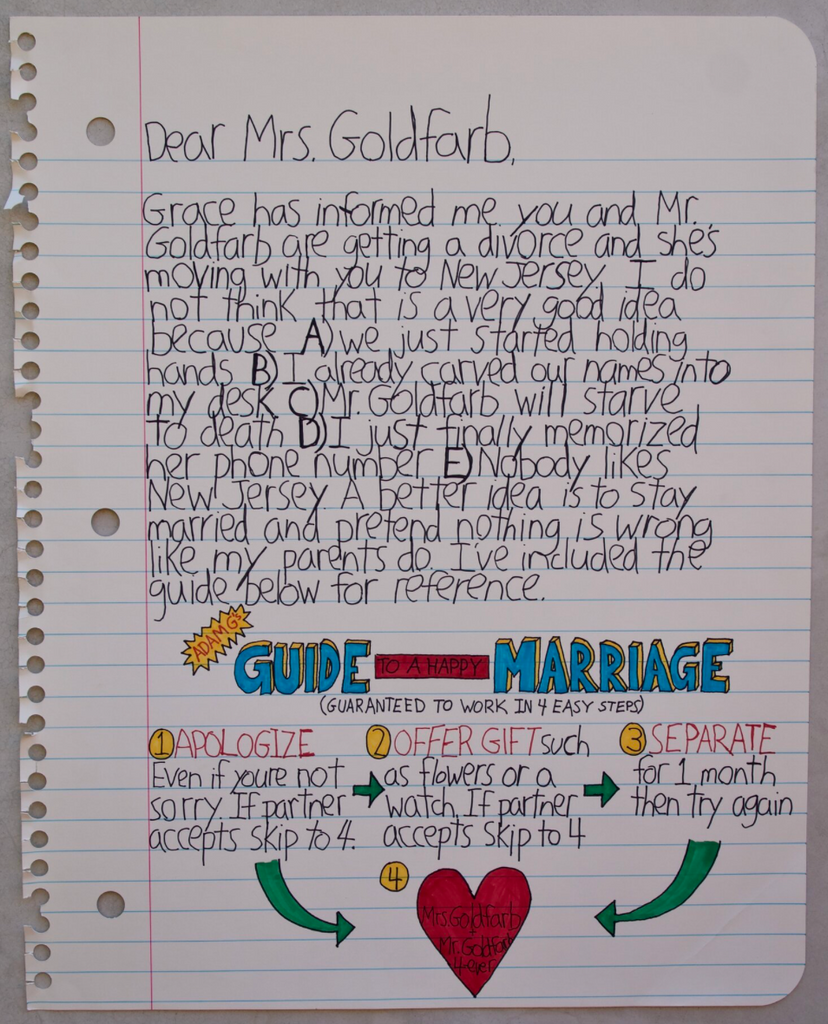 Dear Mrs. Goldfarb,
Grace has informed me you and Mr.
Goldfarb are getting a divorce and she's
moving with you to New Jersey. I do
not think that is a very good idea
because A) we just started holding
hands B) I already carved our names into
my desk C) Mr. Goldfarb will starve
to death D) I just finally memorized
her phone number E) Nobody likes
New Jersey. A better idea is to stay
married and pretend nothing is wrong
like my parents do. I've included the
guide below for reference.
ADAM G's
GUIDE TO A HAPPY MARRIAGE
(GUARANTEED TO WORK IN 4 EASY STEPS)
1 APOLOGIZE
Even if youre not
sorry. If partner
accepts skip to 4.
2 OFFER GIFT such
as flowers or a
watch. If partner
accepts skip to 4
3 SEPARATE
for 1 month
then try again
4
Mrs. Goldfarb
+
Mr. Goldfarb
4-ever